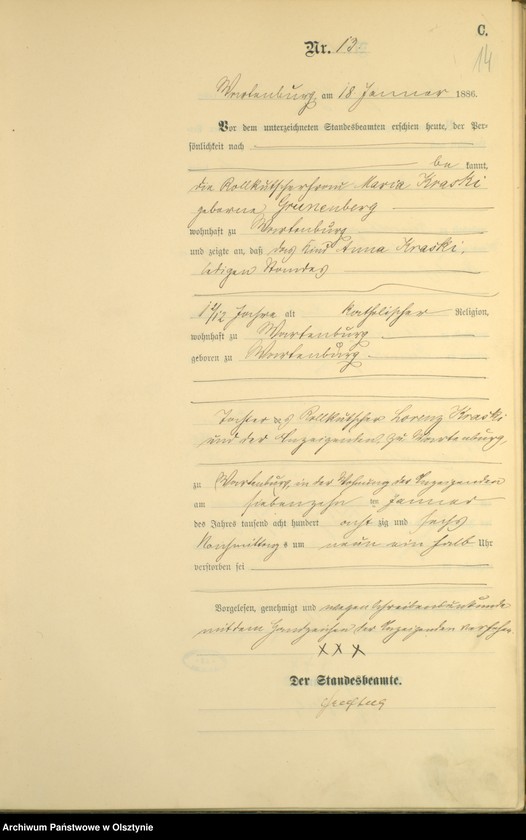 C.
Nr. 13.
14
Wartenburg, am 18. Januar 1886.
Vor dem unterzeichneten Standesbeamten erschien heute, der Per-
sönlichkeit nach
be kannt,
die Rollkutscherfrau Maria Kraski
geborne Grunenberg
wohnhaft zu Wartenburg
und zeigte an, daß das Kind Anna Kraski,
ledigen Standes
Jahre alt katholischer Religion,
wohnhaft zu Wartenburg
geboren zu Wartenburg.
Tochter des Rollkutscher Lorenz Kraski
und der Anzeigenden zu Wartenburg,
zu Wartenburg, in der Wohnung der Anzeigenden
am siebenzehn ten Januar
des Jahres tausend acht hundert acht zig und sechs
Nachmittags um neun ein halb Uhr
verstorben sei
Vorgelesen, genehmigt und wegen Schreibensunkunde
mit dem Handzeichen der Anzeigenden versehen.
XXX
Der Standesbeamte.
Archiwum Państwowe w Olsztynie